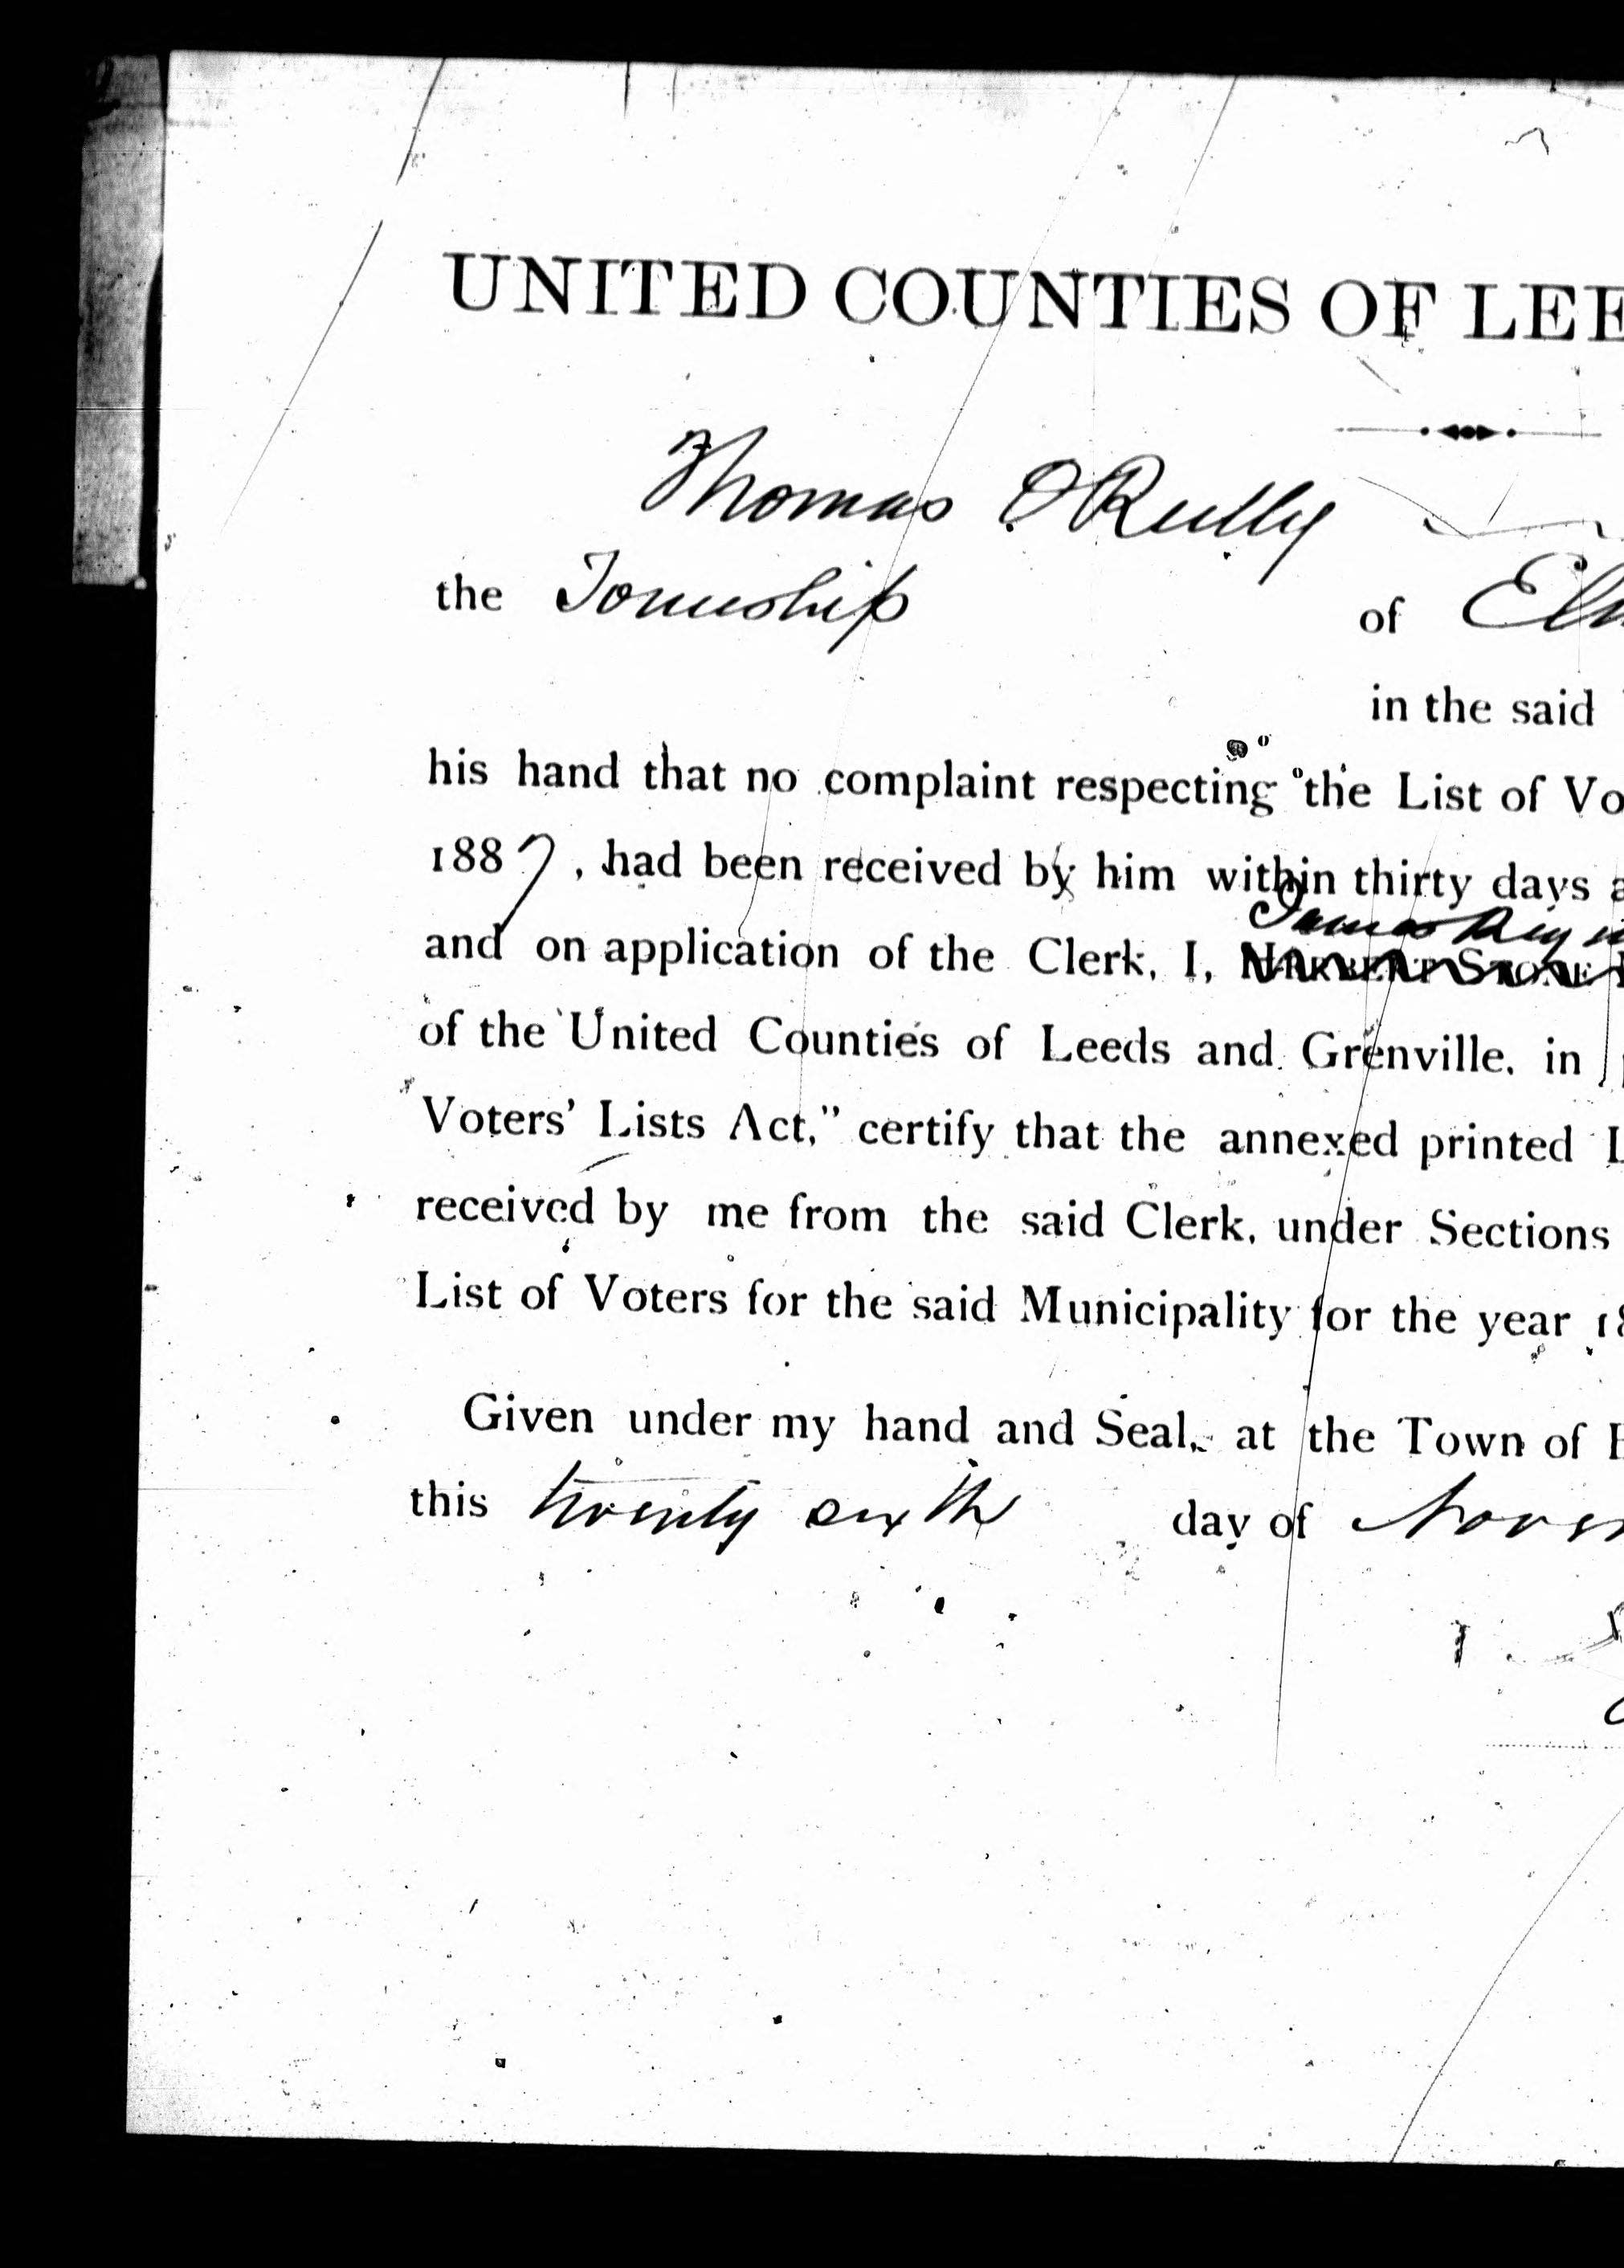 UNITED COUNTIES OF LEE
Thomas O'Reilly
the Township of Elm
in the said
his hand that no complaint respecting the List of Vo
1887, had been received by him within thirty days a
James Rey
and on application of the Clerk, I, HERBERT STONE
of the United Counties of Leeds and Grenville, in
Voters' Lists Act," certify that the annexed printed L
received by me from the said Clerk, under Sections
List of Voters for the said Municipality for the year 18
Given under my hand and Seal, at the Town of B
this twenty sixth day of Novem